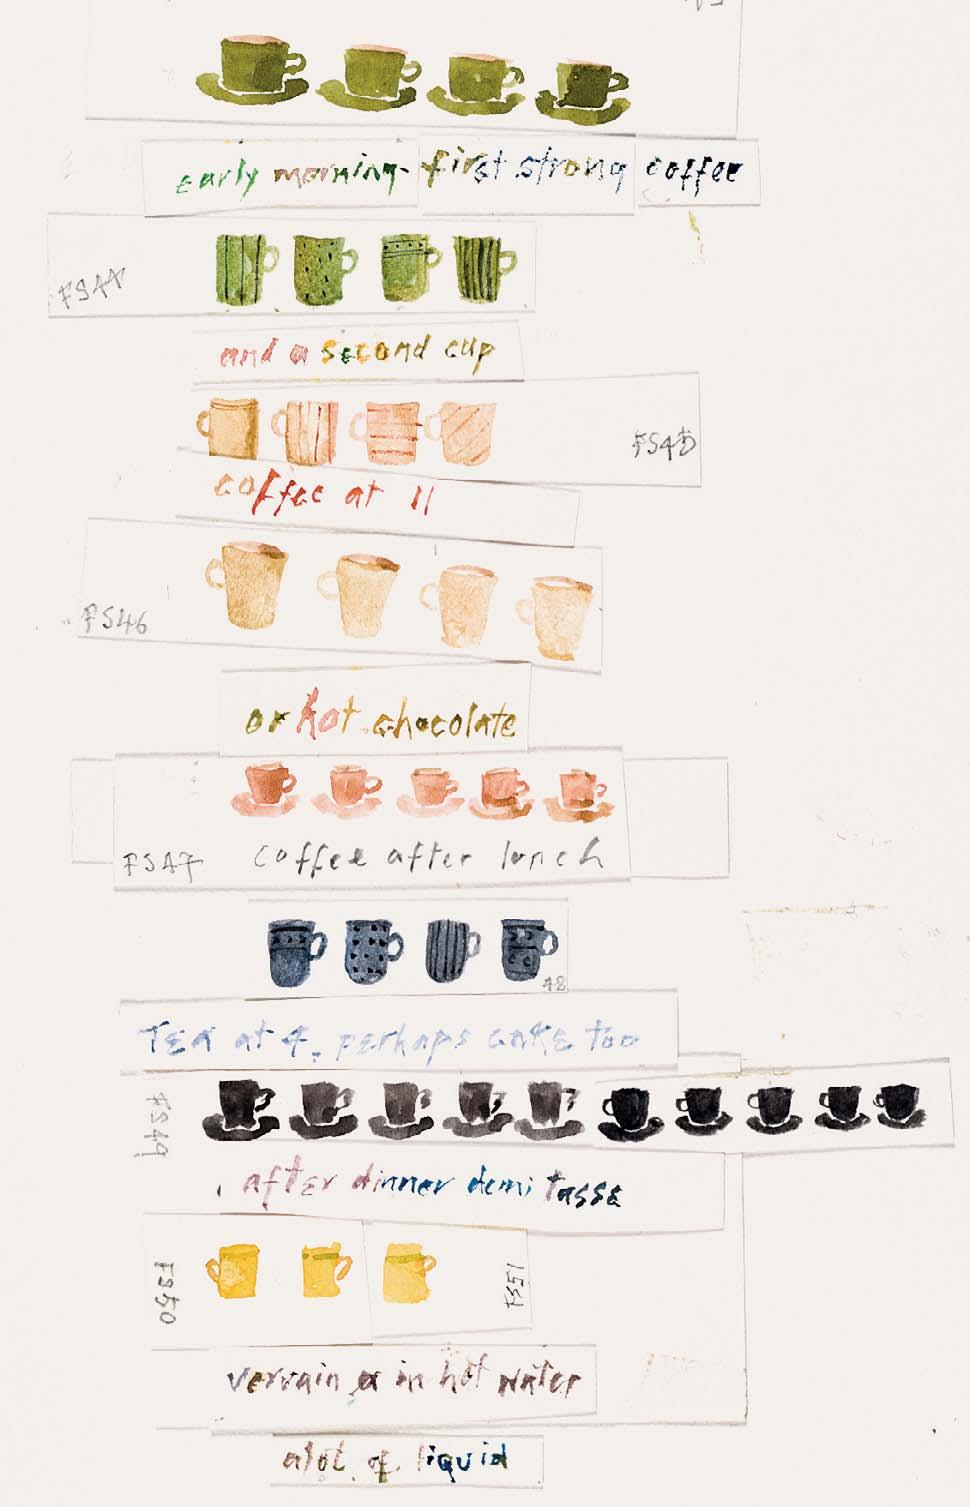 early morning- first strong coffee
FS44
and a second cup
FS45
coffee at 11
FS46
or hot chocolate
FS47 coffee after lunch
48
Tea at 4, perhaps cake too
FS49
after dinner demi tasse
FS50
FS51
vervain in hot water
alot of liquid